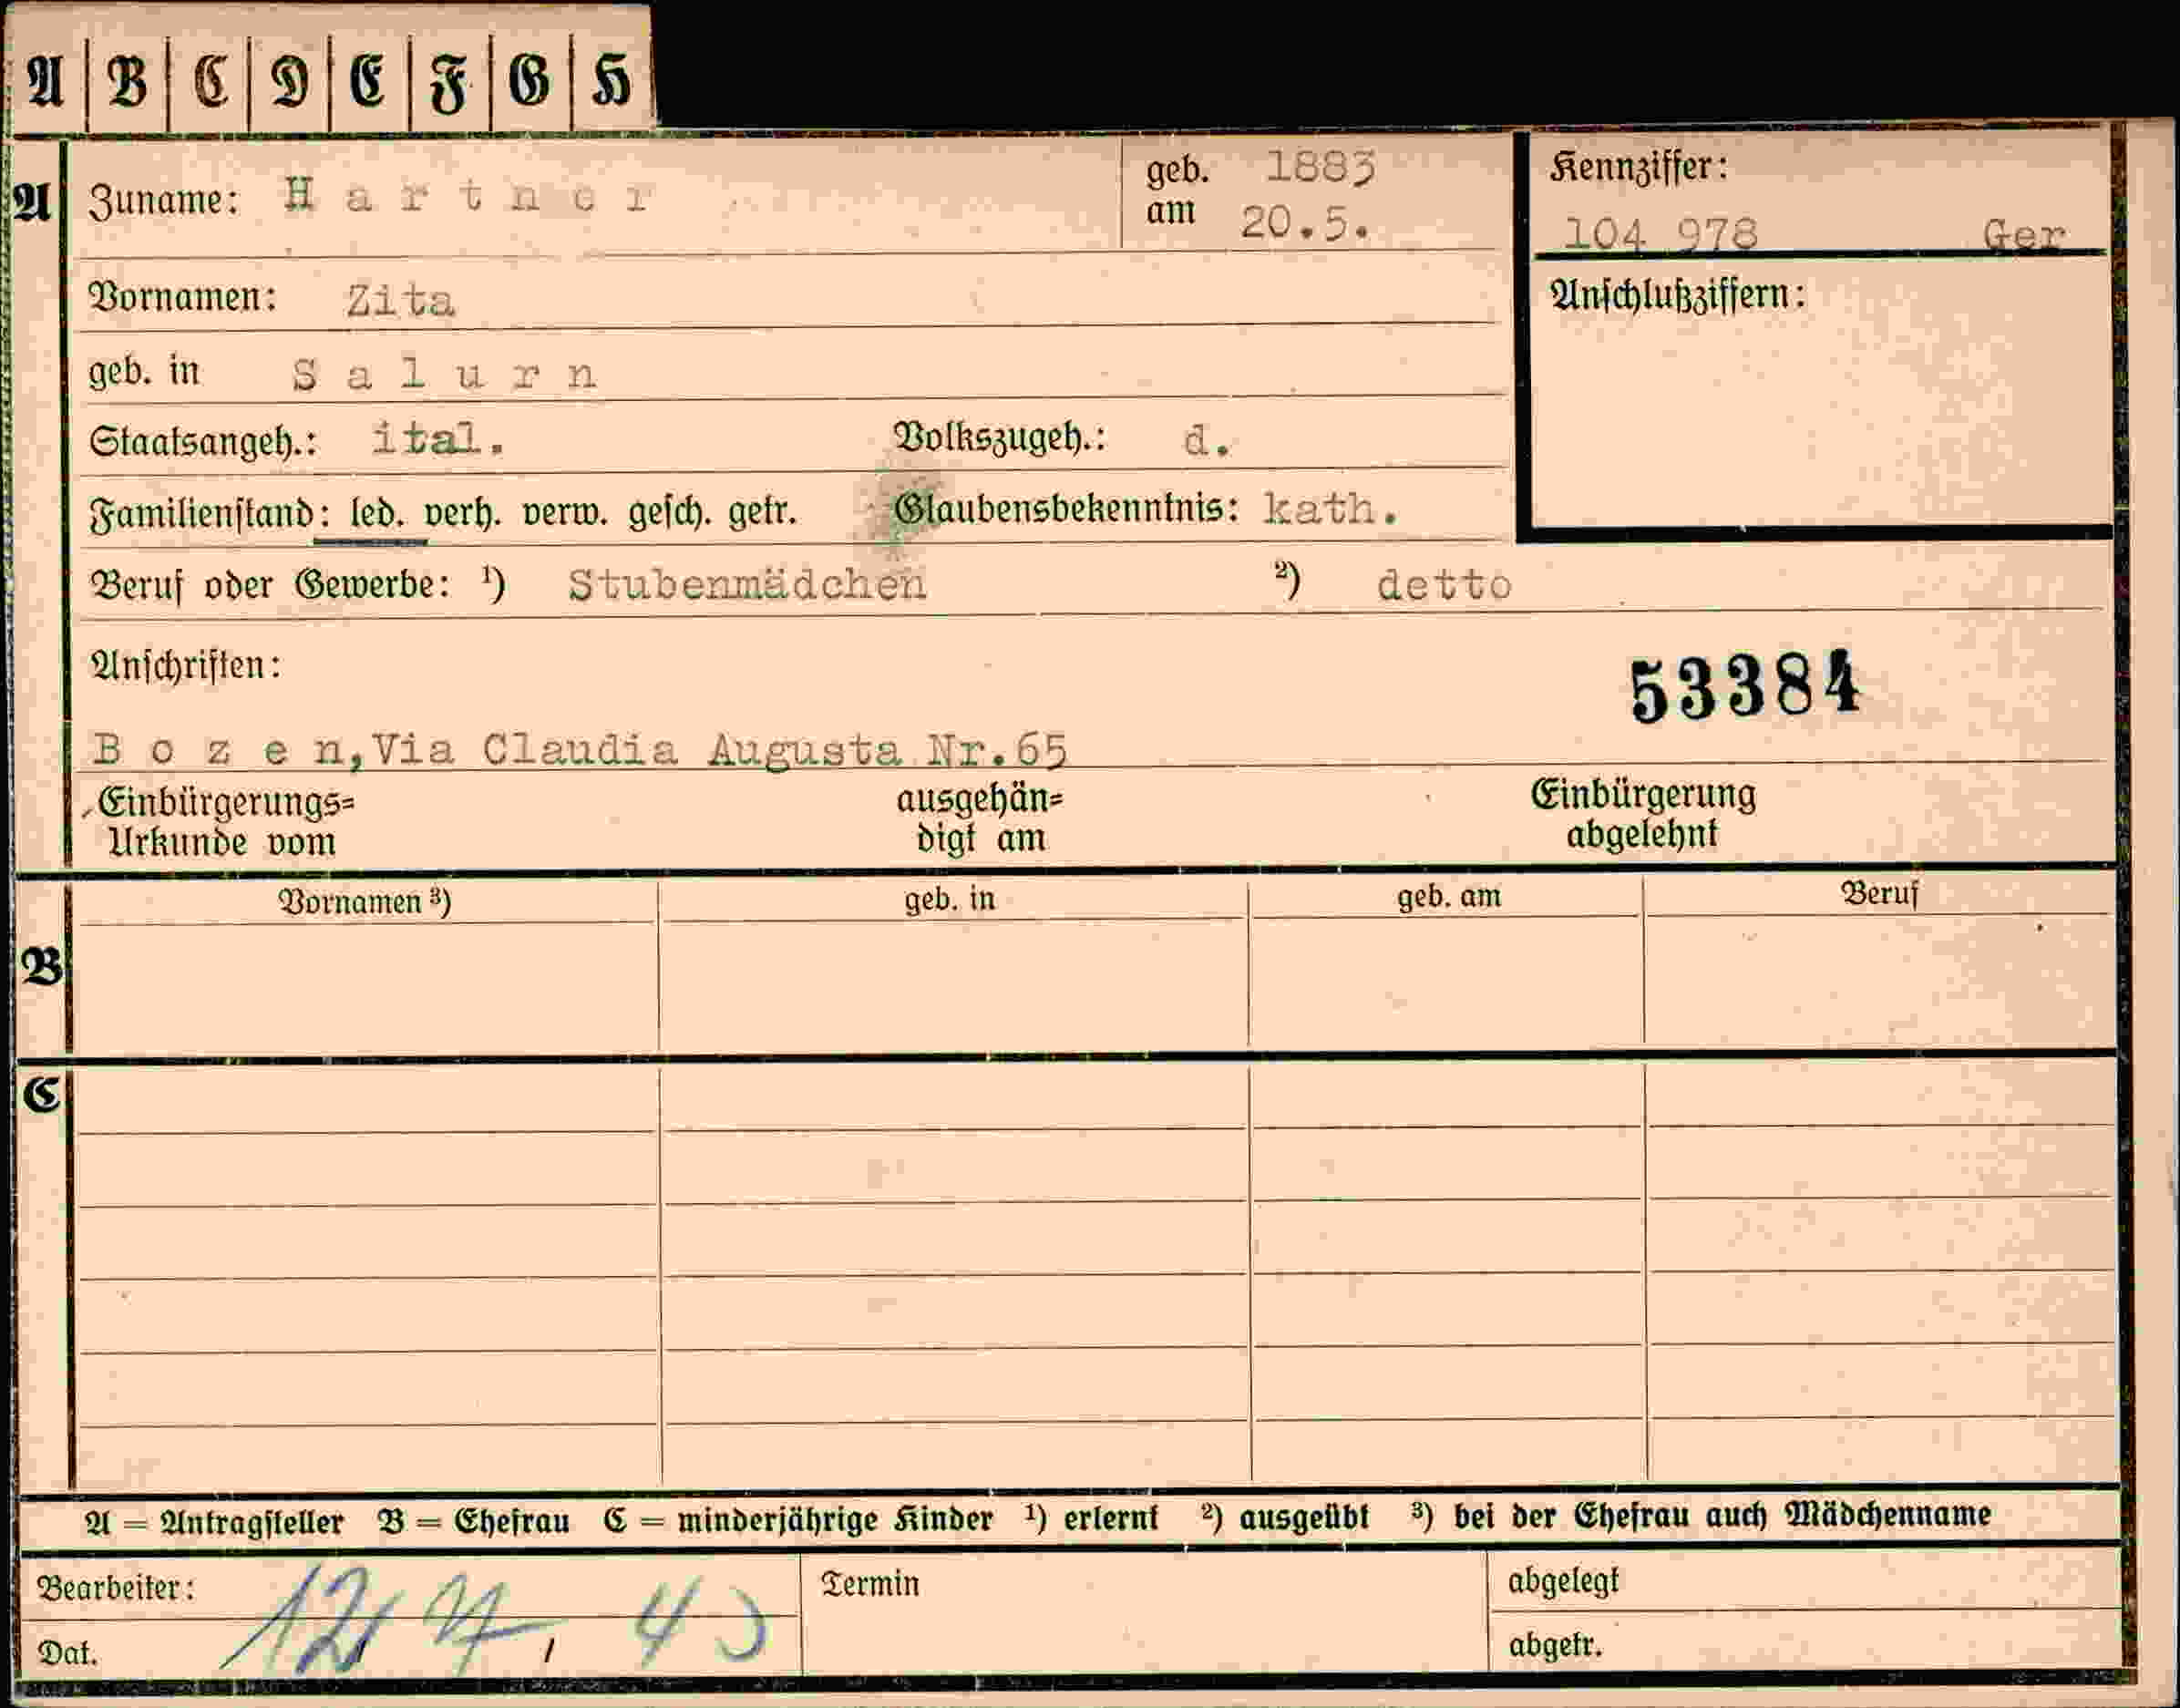 A B C D E F G H
A Zuname: Hartner geb. am 1883 20.5. Kennziffer: 104 978 Ger
Vornamen: Zita Anschlußziffern:
geb. in Salurn
Staatsangeh.: ital. Volkszugeh.: d.
Familienstand: led. verh. verw. gesch. getr. Glaubensbekenntnis: kath.
Beruf oder Gewerbe: ¹) Stubenmädchen ²) detto
Anschriften: 53384
Bozen, Via Claudia Augusta Nr.65
Einbürgerungs= ausgehän= Einbürgerung
Urkunde vom digt am abgelehnt
B Vornamen ³) geb. in geb. am Beruf
C
A = Antragsteller B = Ehefrau C = minderjährige Kinder ¹) erlernt ²) ausgeübt ³) bei der Ehefrau auch Mädchenname
Bearbeiter: Termin abgelegt
Dat. abgetr.